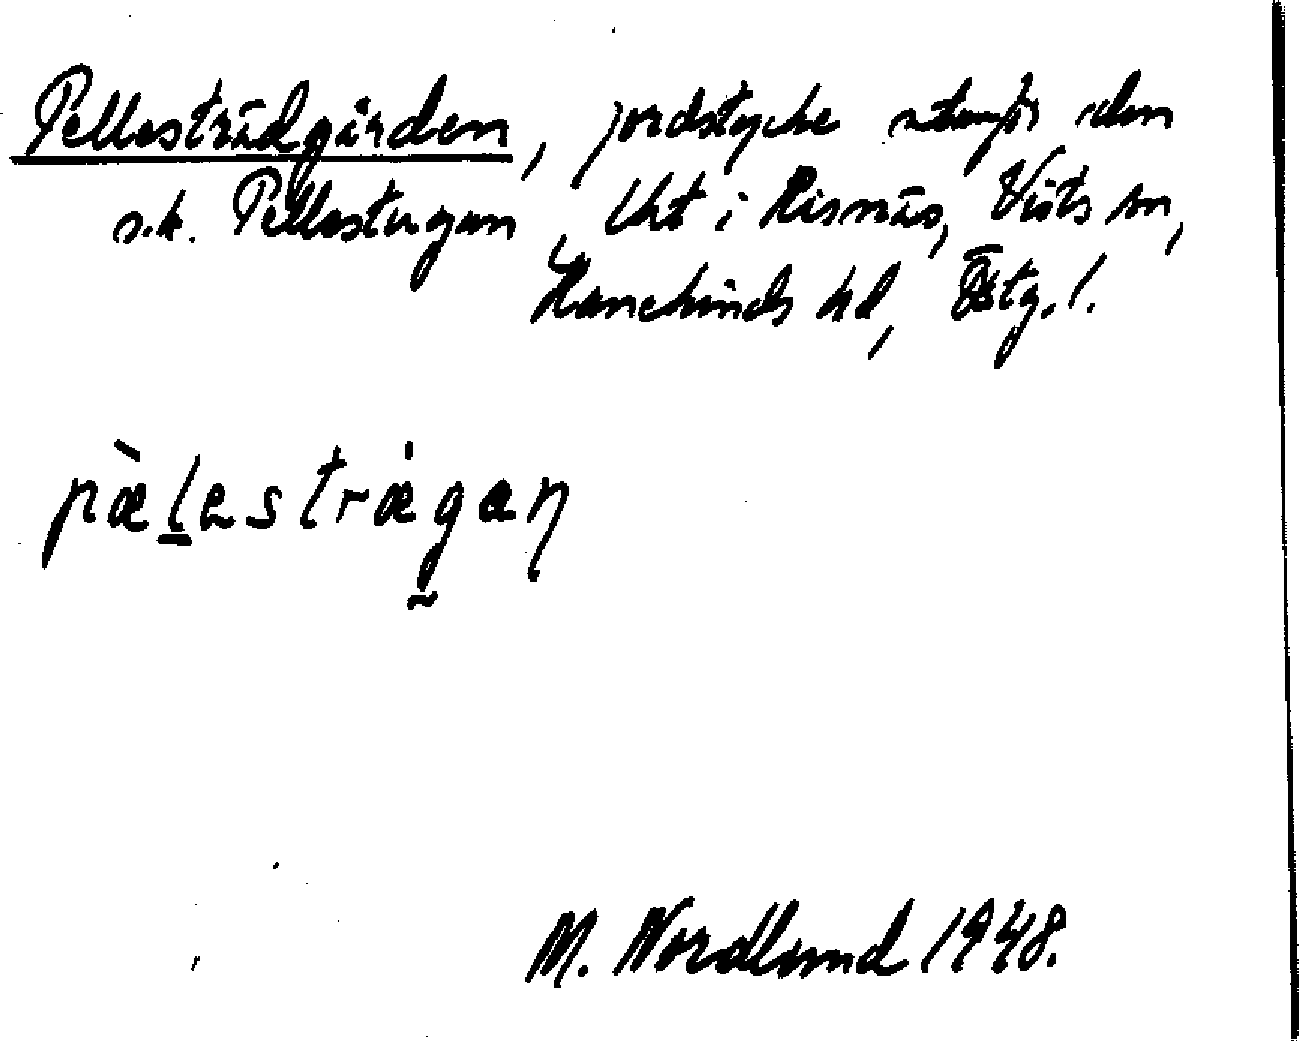 Pellesträdgården, jordstycke utanför den
s.k. Pellestugan, Uht i Risnäs, Vists sn,
Hanekinds hd, Östg. l.
pàlestrágan
M. Nordlund 1948.